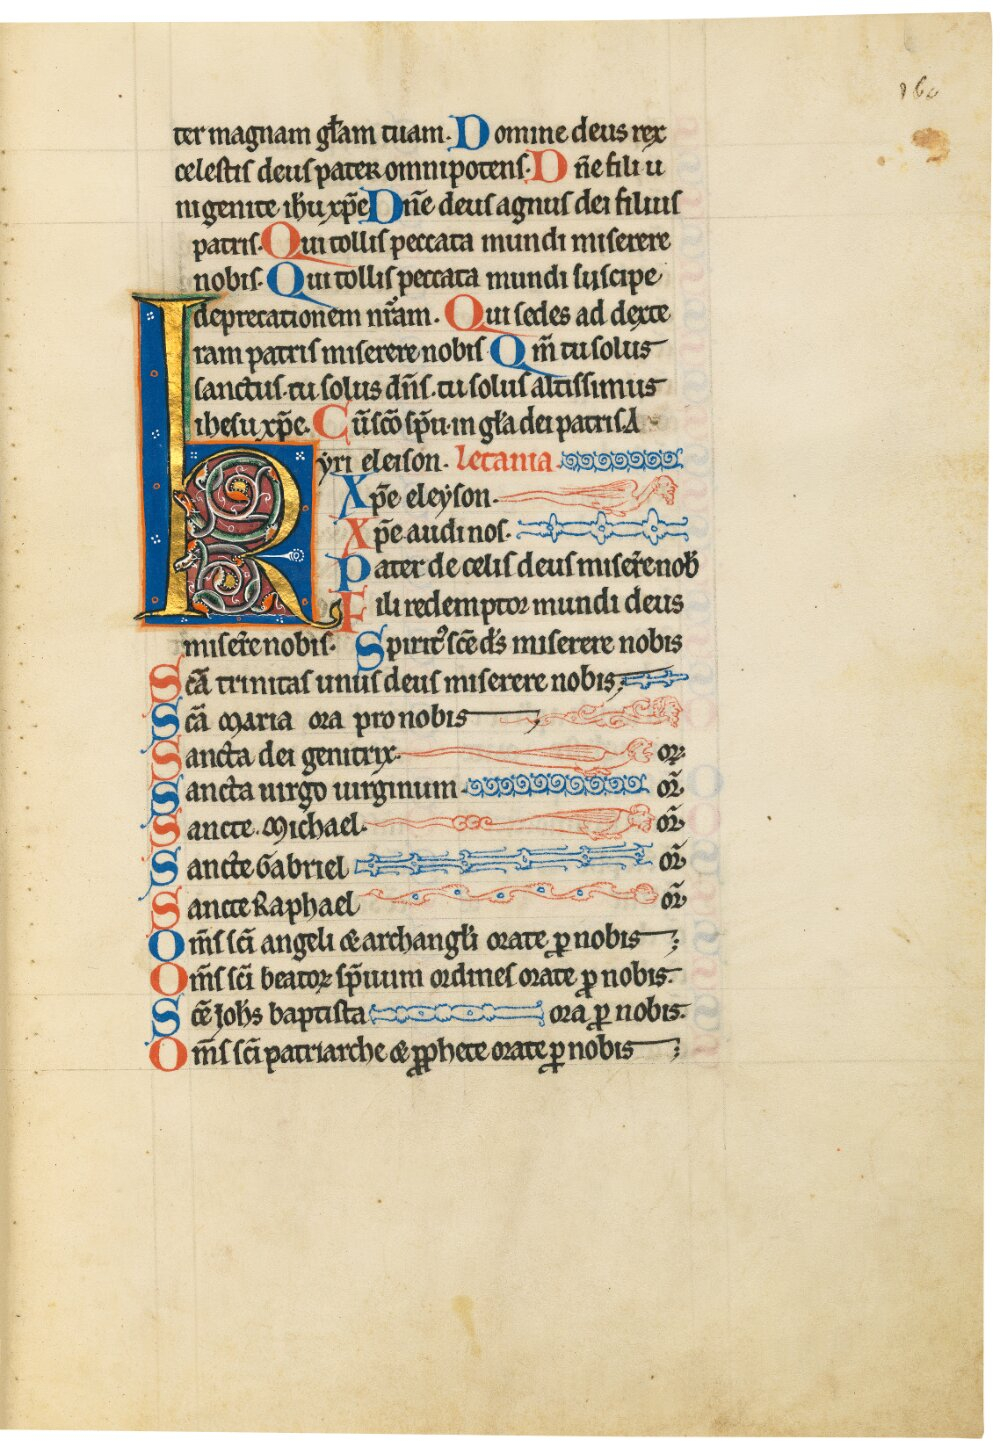 160
ter magnam gl̃am tuam. Domine deus rex
celestis deus pater omnipotens. Dñe fili u
nigenite ihu xp̃e Dñe deus agnus dei filius
patris. Qui tollis peccata mundi miserere
nobis. Qui tollis peccata mundi suscipe
deprecationem nr̃am. Qui sedes ad dexte
ram patris miserere nobis Qm̃ tu solus
sanctus. tu solus dñs. tu solus altissimus
ihesu xp̃e. Cũ sc̃o sp̃u in gl̃a dei patris A
Kyri eleison. letania
Xp̃e eleyson.
Xp̃e audi nos.
Pater de celis deus miser̃e nob̃
Fili redemptor mundi deus
miser̃e nobis. Spirit᷒ sc̃e d̃s miserere nobis
Sc̃a trinitas unus deus miserere nobis.
Sc̃a maria ora pro nobis
Sancta dei genitrix. or̃.
Sancta uirgo uirginum. or̃.
Sancte. Michael. or̃.
Sancte Gabriel or̃.
Sancte Raphael or̃.
Om̃s sc̃i angeli & archangl̃i orate ꝑ nobis
Om̃s sc̃i beatoꝝ sp̃uum ordines orate ꝑ nobis.
Sc̃e Joh̃s baptista ora ꝑ nobis.
Om̃s sc̃i patriarche & ꝓphete orate ꝑ nobis